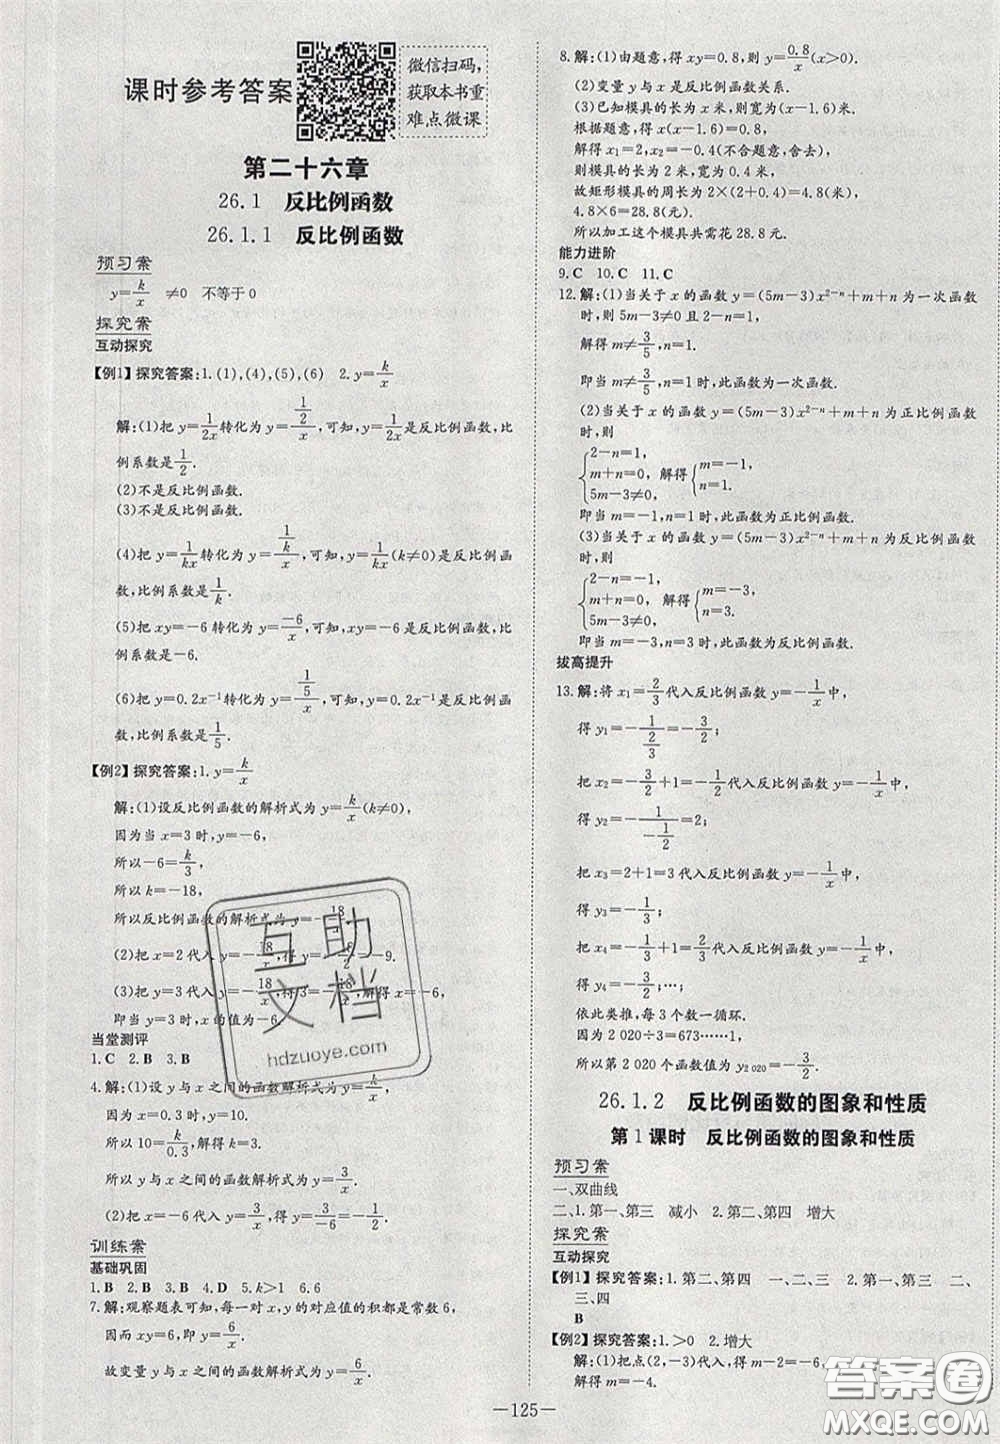 课时参考答案
微信扫码,
获取本书重
难点微课
第二十六章
26.1 反比例函数
26.1.1 反比例函数
预习案
y=k/x ≠0 不等于0
探究案
互动探究
【例1】探究答案:1.(1),(4),(5),(6) 2.y=k/x
解:(1)把y=1/2x转化为y=(1/2)/x,可知,y=1/2x是反比例函数,比
例系数是1/2.
(2)不是反比例函数.
(3)不是反比例函数.
(4)把y=1/kx转化为y=(1/k)/x,可知,y=1/kx(k≠0)是反比例函
数,比例系数是1/k.
(5)把xy=-6转化为y=-6/x,可知,xy=-6是反比例函数,
比例系数是-6.
(6)把y=0.2x⁻¹转化为y=(1/5)/x,可知,y=0.2x⁻¹是反比例函
数,比例系数是1/5.
【例2】探究答案:1.y=k/x
解:(1)设反比例函数的解析式为y=k/x(k≠0),
因为当x=3时,y=-6,
所以-6=k/3,
所以k=-18,
所以反比例函数的解析式为y=-18/x.
(2)把x=2代入y=-18/x,得y=-18/2=-9.
(3)把y=3代入y=-18/x,得3=-18/x,解得x=-6,
即当y=3时,x的值为-6.
当堂测评
1.C 2.B 3.B
4.解:(1)设y与x之间的函数解析式为y=k/x,
因为x=0.3时,y=10,
所以10=k/0.3,解得k=3.
所以y与x之间的函数解析式为y=3/x.
(2)把x=-6代入,得y=3/-6=-1/2.
训练案
基础巩固
1.B 2.B 3.B 4.C 5.k>1 6.6
7.解:观察题表可知,每一对x,y的对应值的积都是常数6,
因而xy=6,即y=6/x.
故变量y与x之间的函数解析式为y=6/x.
8.解:(1)由题意,得xy=0.8,则y=0.8/x(x>0).
(2)变量y与x是反比例函数关系.
(3)已知模具的长为x米,则宽为(x-1.6)米.
根据题意,得x(x-1.6)=0.8,
解得x₁=2,x₂=-0.4(不合题意,舍去),
则模具的长为2米,宽为0.4米,
故矩形模具的周长为2×(2+0.4)=4.8(米),
4.8×6=28.8(元).
所以加工这个模具共需花28.8元.
能力进阶
9.C 10.C 11.C
12.解:(1)当关于x的函数y=(5m-3)x²⁻ⁿ+m+n为一次函数
时,则5m-3≠0且2-n=1,
解得m≠3/5,n=1.
即当m≠3/5,n=1时,此函数为一次函数.
(2)当关于x的函数y=(5m-3)x²⁻ⁿ+m+n为正比例函数
时,则
2-n=1,
m+n=0, 解得 m=-1,
5m-3≠0, n=1.
即当m=-1,n=1时,此函数为正比例函数.
(3)当关于x的函数y=(5m-3)x²⁻ⁿ+m+n为反比例函数
时,则
2-n=-1,
m+n=0, 解得 m=-3,
5m-3≠0, n=3.
即当m=-3,n=3时,此函数为反比例函数.
拔高提升
13.解:将x₁=2/3代入反比例函数y=-1/x中,
得y₁=-1/(2/3)=-3/2;
把x₂=-3/2+1=-1/2代入反比例函数y=-1/x中,
得y₂=-1/(-1/2)=2;
把x₃=2+1=3代入反比例函数y=-1/x中,
得y₃=-1/3;
把x₄=-1/3+1=2/3代入反比例函数y=-1/x中,
得y₄=-3/2;…
依此类推,每3个数一循环.
因为2 020÷3=673……1,
所以第2 020个函数值为y₂ ₀₂₀=-3/2.
26.1.2 反比例函数的图象和性质
第1课时 反比例函数的图象和性质
预习案
一、双曲线
二、1.第一、第三 减小 2.第二、第四 增大
探究案
互动探究
【例1】探究答案:1.第二、第四 一、二、三 2.第一、第三 二、
三、四
B
【例2】探究答案:1.>0 2.增大
解:(1)把点(2,-3)代入,得
解得m=-4.
—125—
互助
文档
hdzuoye.com
答案圈
MXQE.COM